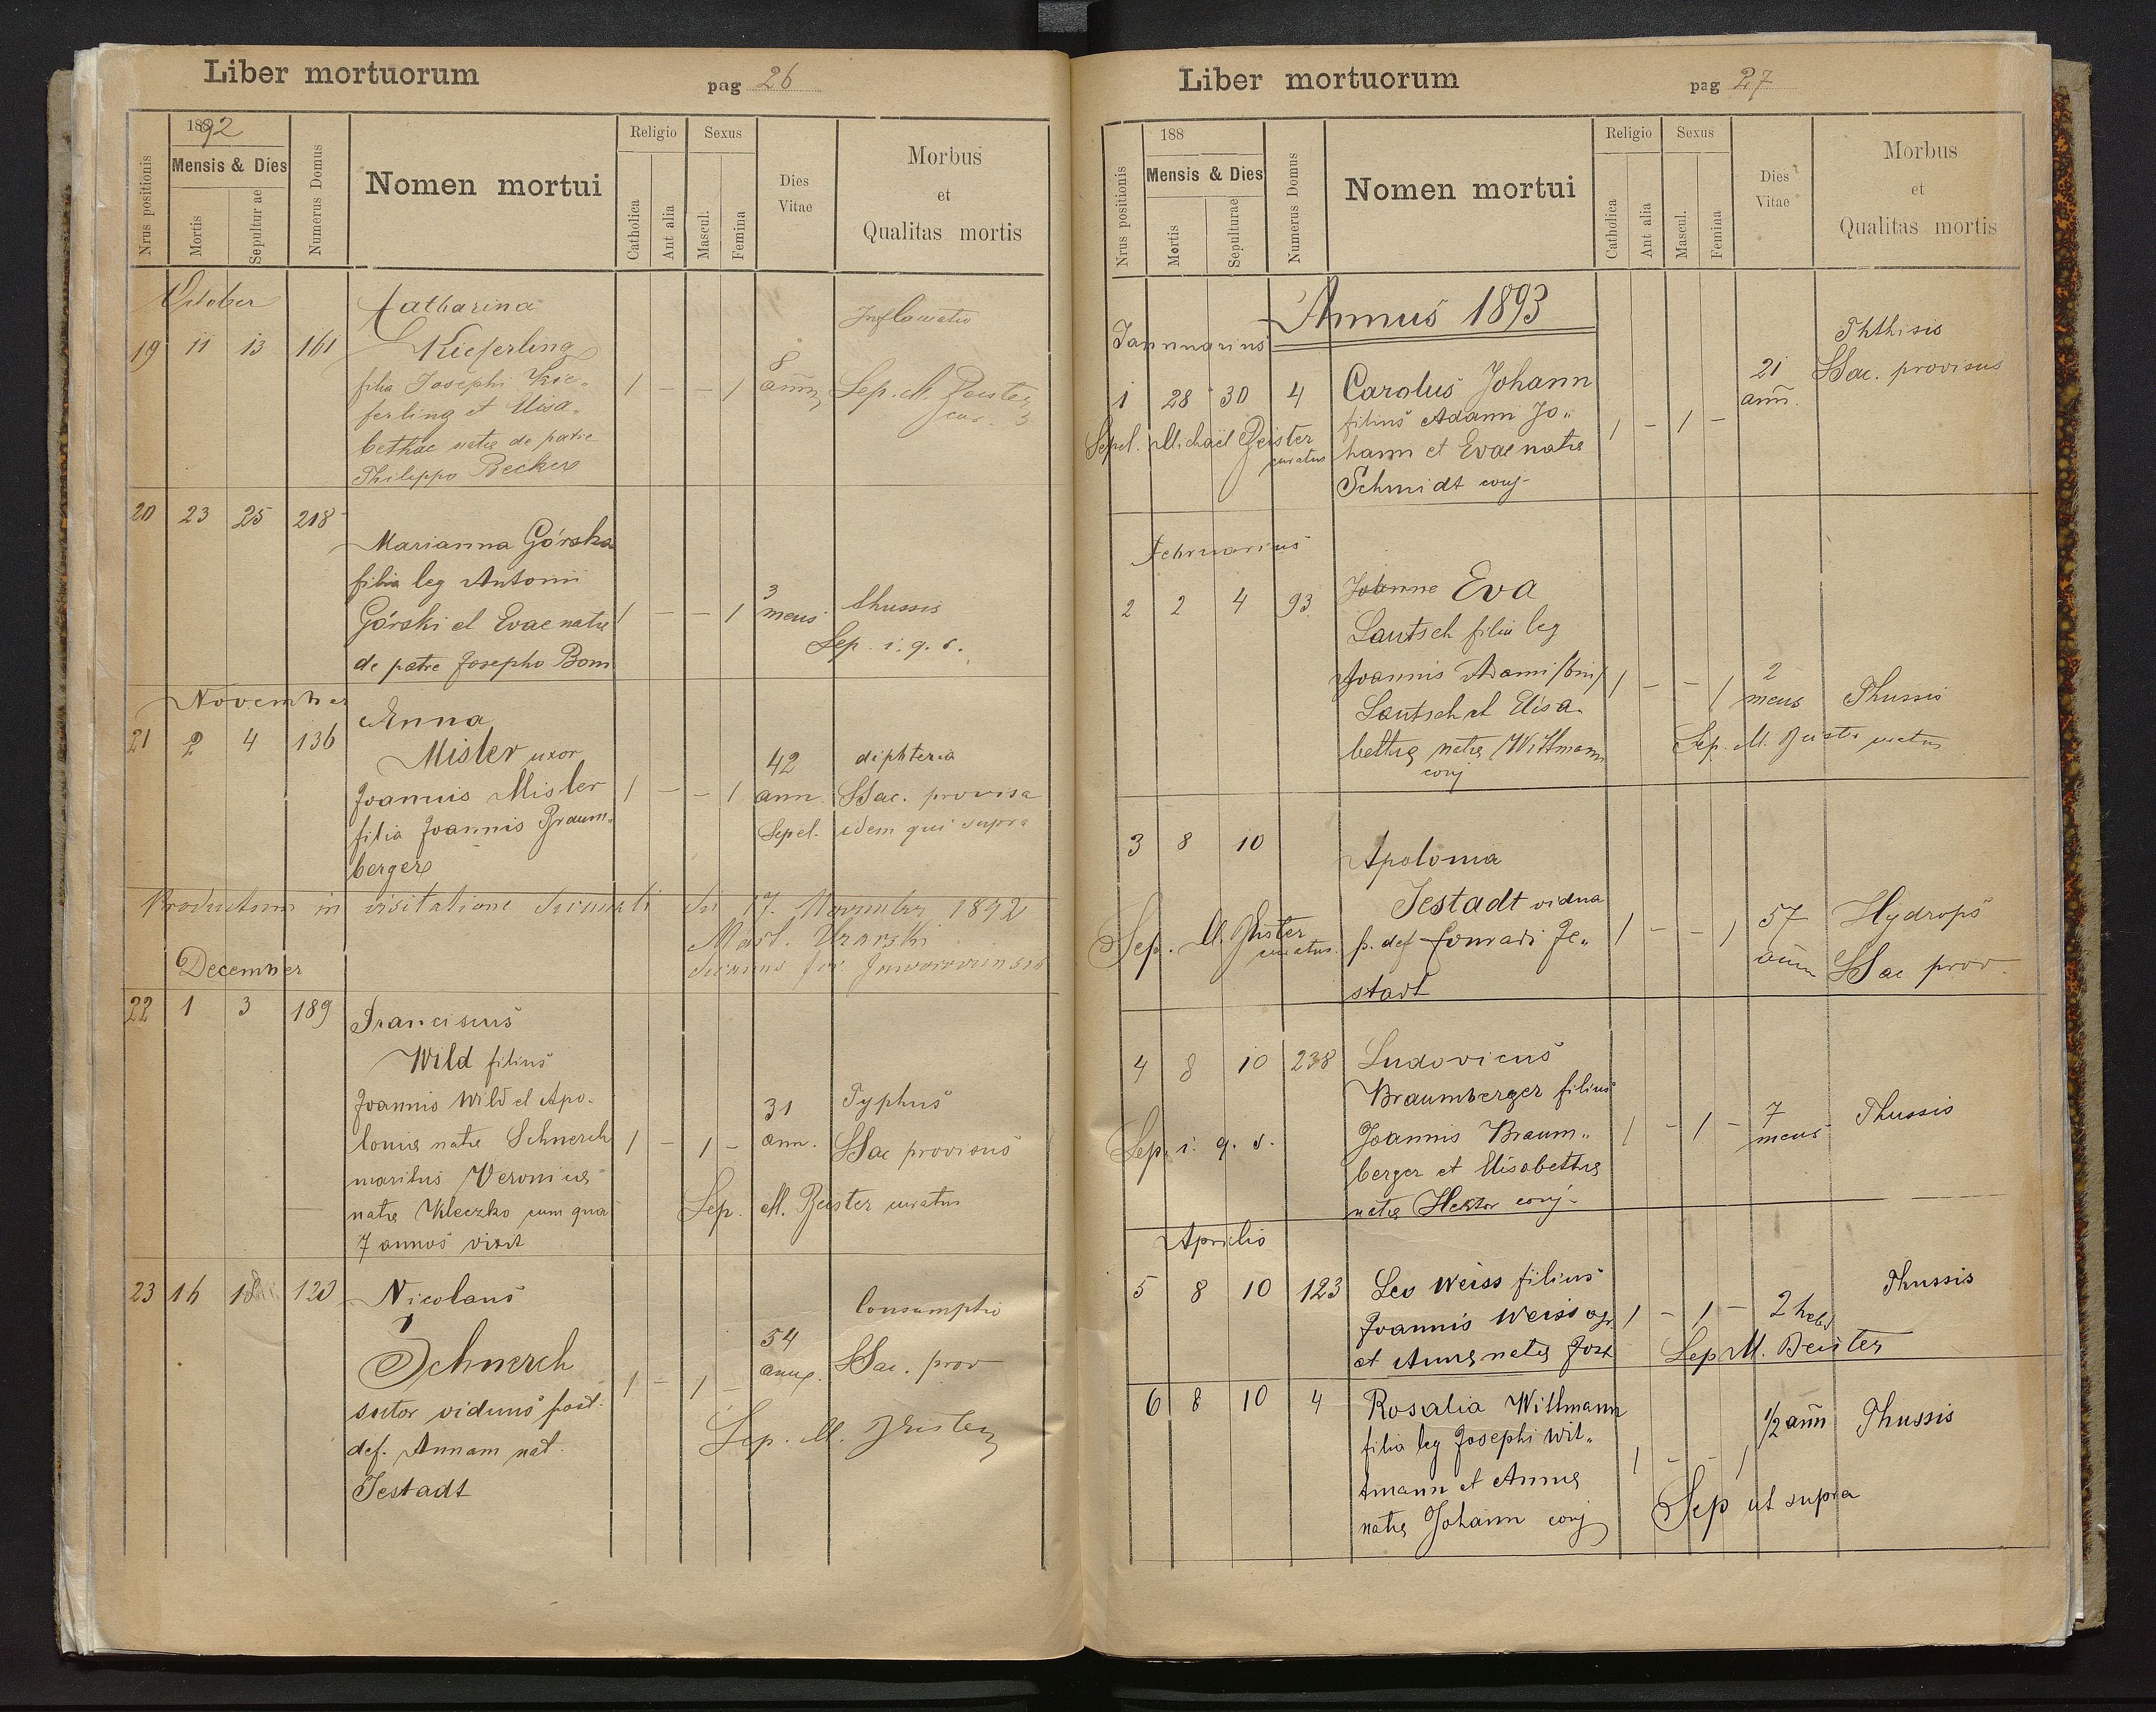 Liber mortuorum
pag 26
1892
Mensis & Dies
Nrus positionis
Mortis
Sepultur ae
Numerus Domus
Nomen mortui
Religio
Catholica
Aut alia
Sexus
Mascul.
Femina
Dies
Vitae
Morbus
et
Qualitas mortis
October
19 11 13 161
Catharina
Kieferling
filia Josephi Kie„
ferling et Elisa„
bethae natæ de patre
Philippo Becker
1 – – 1
8
ann
Inflamatio
Sep. M. Beister
cur.
20 23 25 218
Marianna Górska
filia leg Antonii
Górski et Evae natæ
de patre Josepho Bom
1 – – 1
3
mens
thussis
Sep. i. q. s.
November
21 2 4 136
Anna
Misler uxor
Joannis Misler
filia Joannis Braum„
berger
1 – – 1
42
ann.
diphteria
SSac. provisa
Sepel. idem qui supra
Productum in visitatione decanali die 17. November 1892
December
22 1 3 189
Franciscus
Wild filius
Joannis Wild et Apo„
loniæ natæ Schnerch
maritus Veronicæ
natæ Kleczko cum qua
7 annos vixit
1 – 1 –
31
ann.
Typhus
SSac provisus
Sep. M. Beister curatus
23 16 18 120
Nicolaus
Schnerch
sutor viduus post.
def. Annam nat.
Jestadt
1 – 1 –
54
ann.
Consumptio
SSac. prov
Sep. M. Beister
Liber mortuorum
pag 27
188
Mensis & Dies
Nrus positionis
Mortis
Sepulturae
Numerus Domus
Nomen mortui
Religio
Catholica
Aut alia
Sexus
Mascul.
Femina
Dies
Vitae
Morbus
et
Qualitas mortis
Annus 1893
Januarius
1 28 30 4
Sepel. Michaël Beister
curatus
Carolus Johann
filius Adami Jo„
hann et Evae natæ
Schmidt conj.
1 – 1 –
21
ann.
Phthisis
SSac. provisus
Februarius
2 2 4 93
Eva
Lautsch filia leg
Joannis Adami /bin/
Lautsch et Elisa„
bethæ natæ Wittmann
conj
1 – – 1
2
mens
Thussis
Sep. M. Beister curatus
3 8 10
Sep. M. Beister
curatus.
Apolonia
Jestadt vidua
p. def Conradi Je„
stadt
1 – – 1
57
ann
Hydrops
SSac prov.
4 8 10 238
Sep. i. q. s.
Ludovicus
Braumberger filius
Joannis Braum„
berger et Elisabethæ
natæ Hektor conj.
1 – 1 –
7
mens
Thussis
Aprilis
5 8 10 123
Leo Weiss filius
Joannis Weiss agr.
et Annæ natæ Jost
1 – 1 –
2 hebd
Thussis
Sep M. Beister
6 8 10 4
Rosalia Wittmann
filia leg Josephi Wit„
tmann et Annæ
natæ Johann conj
1 – – 1
1/2 ann
Thussis
Sep ut supra